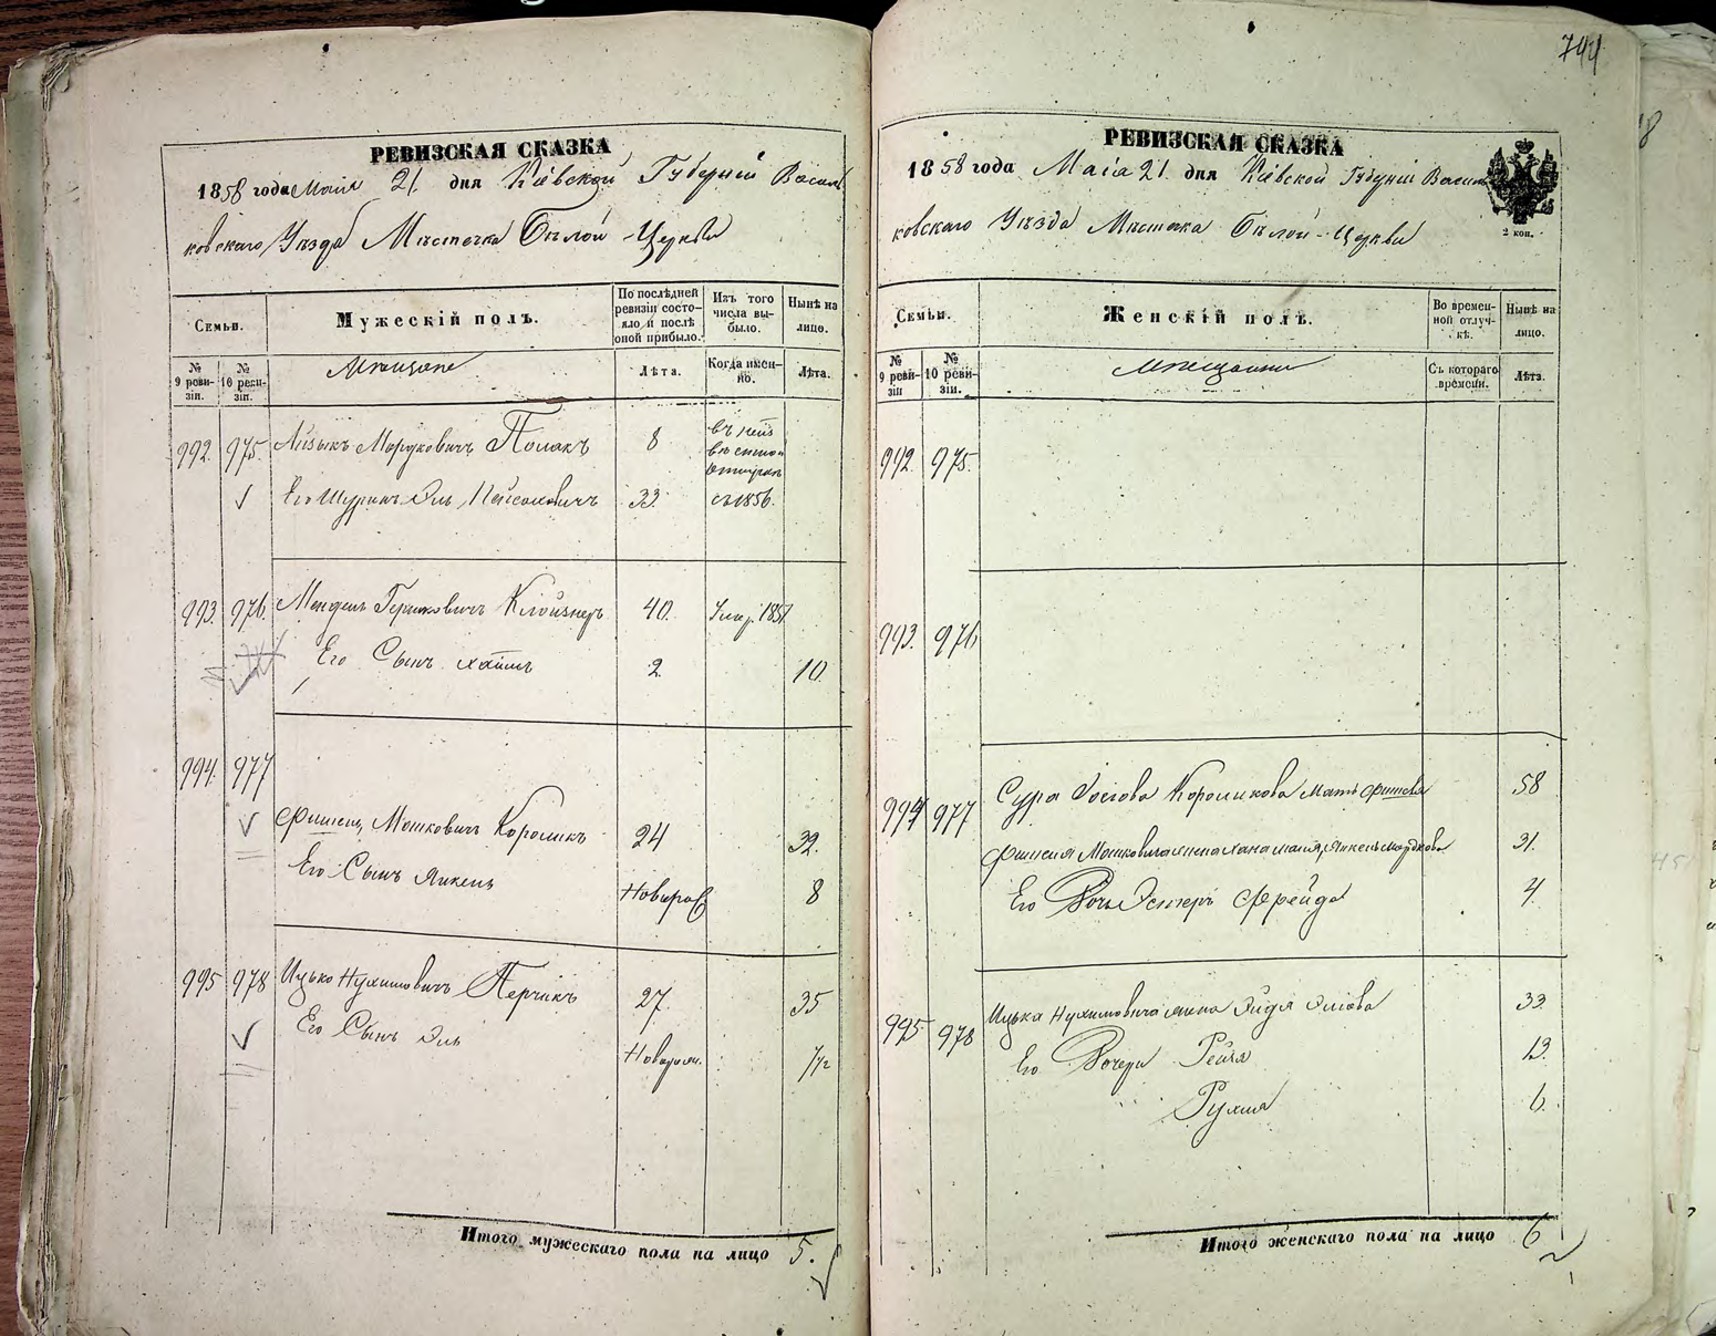 744
РЕВИЗСКАЯ СКАЗКА
1858 года Маія 21. дня Кіевской Губерніи Василь
ковскаго Уѣзда Мѣстечка Бѣлой-Церкви
Семьи.
Мужескій полъ.
По послѣдней ревизіи состо-
яло и послѣ оной прибыло.
Изъ того числа вы-
было.
Нынѣ на лицо.
№ 9 реви-
зіи.
№ 10 реви-
зіи.
Мѣщане
Лѣта.
Когда имен-
но.
Лѣта.
992. 975. Айзыкъ Мордковичъ Полакъ 8
Его Шуринъ Эль Пейсаховичъ 33. съ 1856.
993. 976. Мендель Гершковичъ Клойзнеръ 40. Умер. 1851
Его Сынъ Хаимъ 2. 10.
994. 977
Фишель Мошковичъ Короликъ 24 32.
Его Сынъ Янкель Новорож 8
995 978 Ицько Нухимовичъ Перчикъ 27. 35
Его Сынъ Эль Новорож. 1/2
Итого мужескаго пола на лицо 5.
РЕВИЗСКАЯ СКАЗКА
1858 года Маіа 21. дня Кіевской Губерніи Василь
ковскаго Уѣзда Мѣстечка Бѣлой-Церкви
2 коп.
Семьи.
Женскій полъ.
Во времен-
ной отлуч-
кѣ.
Нынѣ на лицо.
№ 9 реви-
зіи
№ 10 реви-
зіи.
Мѣщанки
Съ котораго времени.
Лѣта.
992. 975.
993. 976
994 977 Сура Іосіова Короликова Мать Фишеля 58
Фишеля Мошковича жена Хана 31.
Его Дочь Эстеръ Фрейда 4.
995. 978 Ицька Нухимовича жена Эйдя Эліова 33.
Его Дочери Рейзя 13.
Рухля 6.
Итого женскаго пола на лицо 6